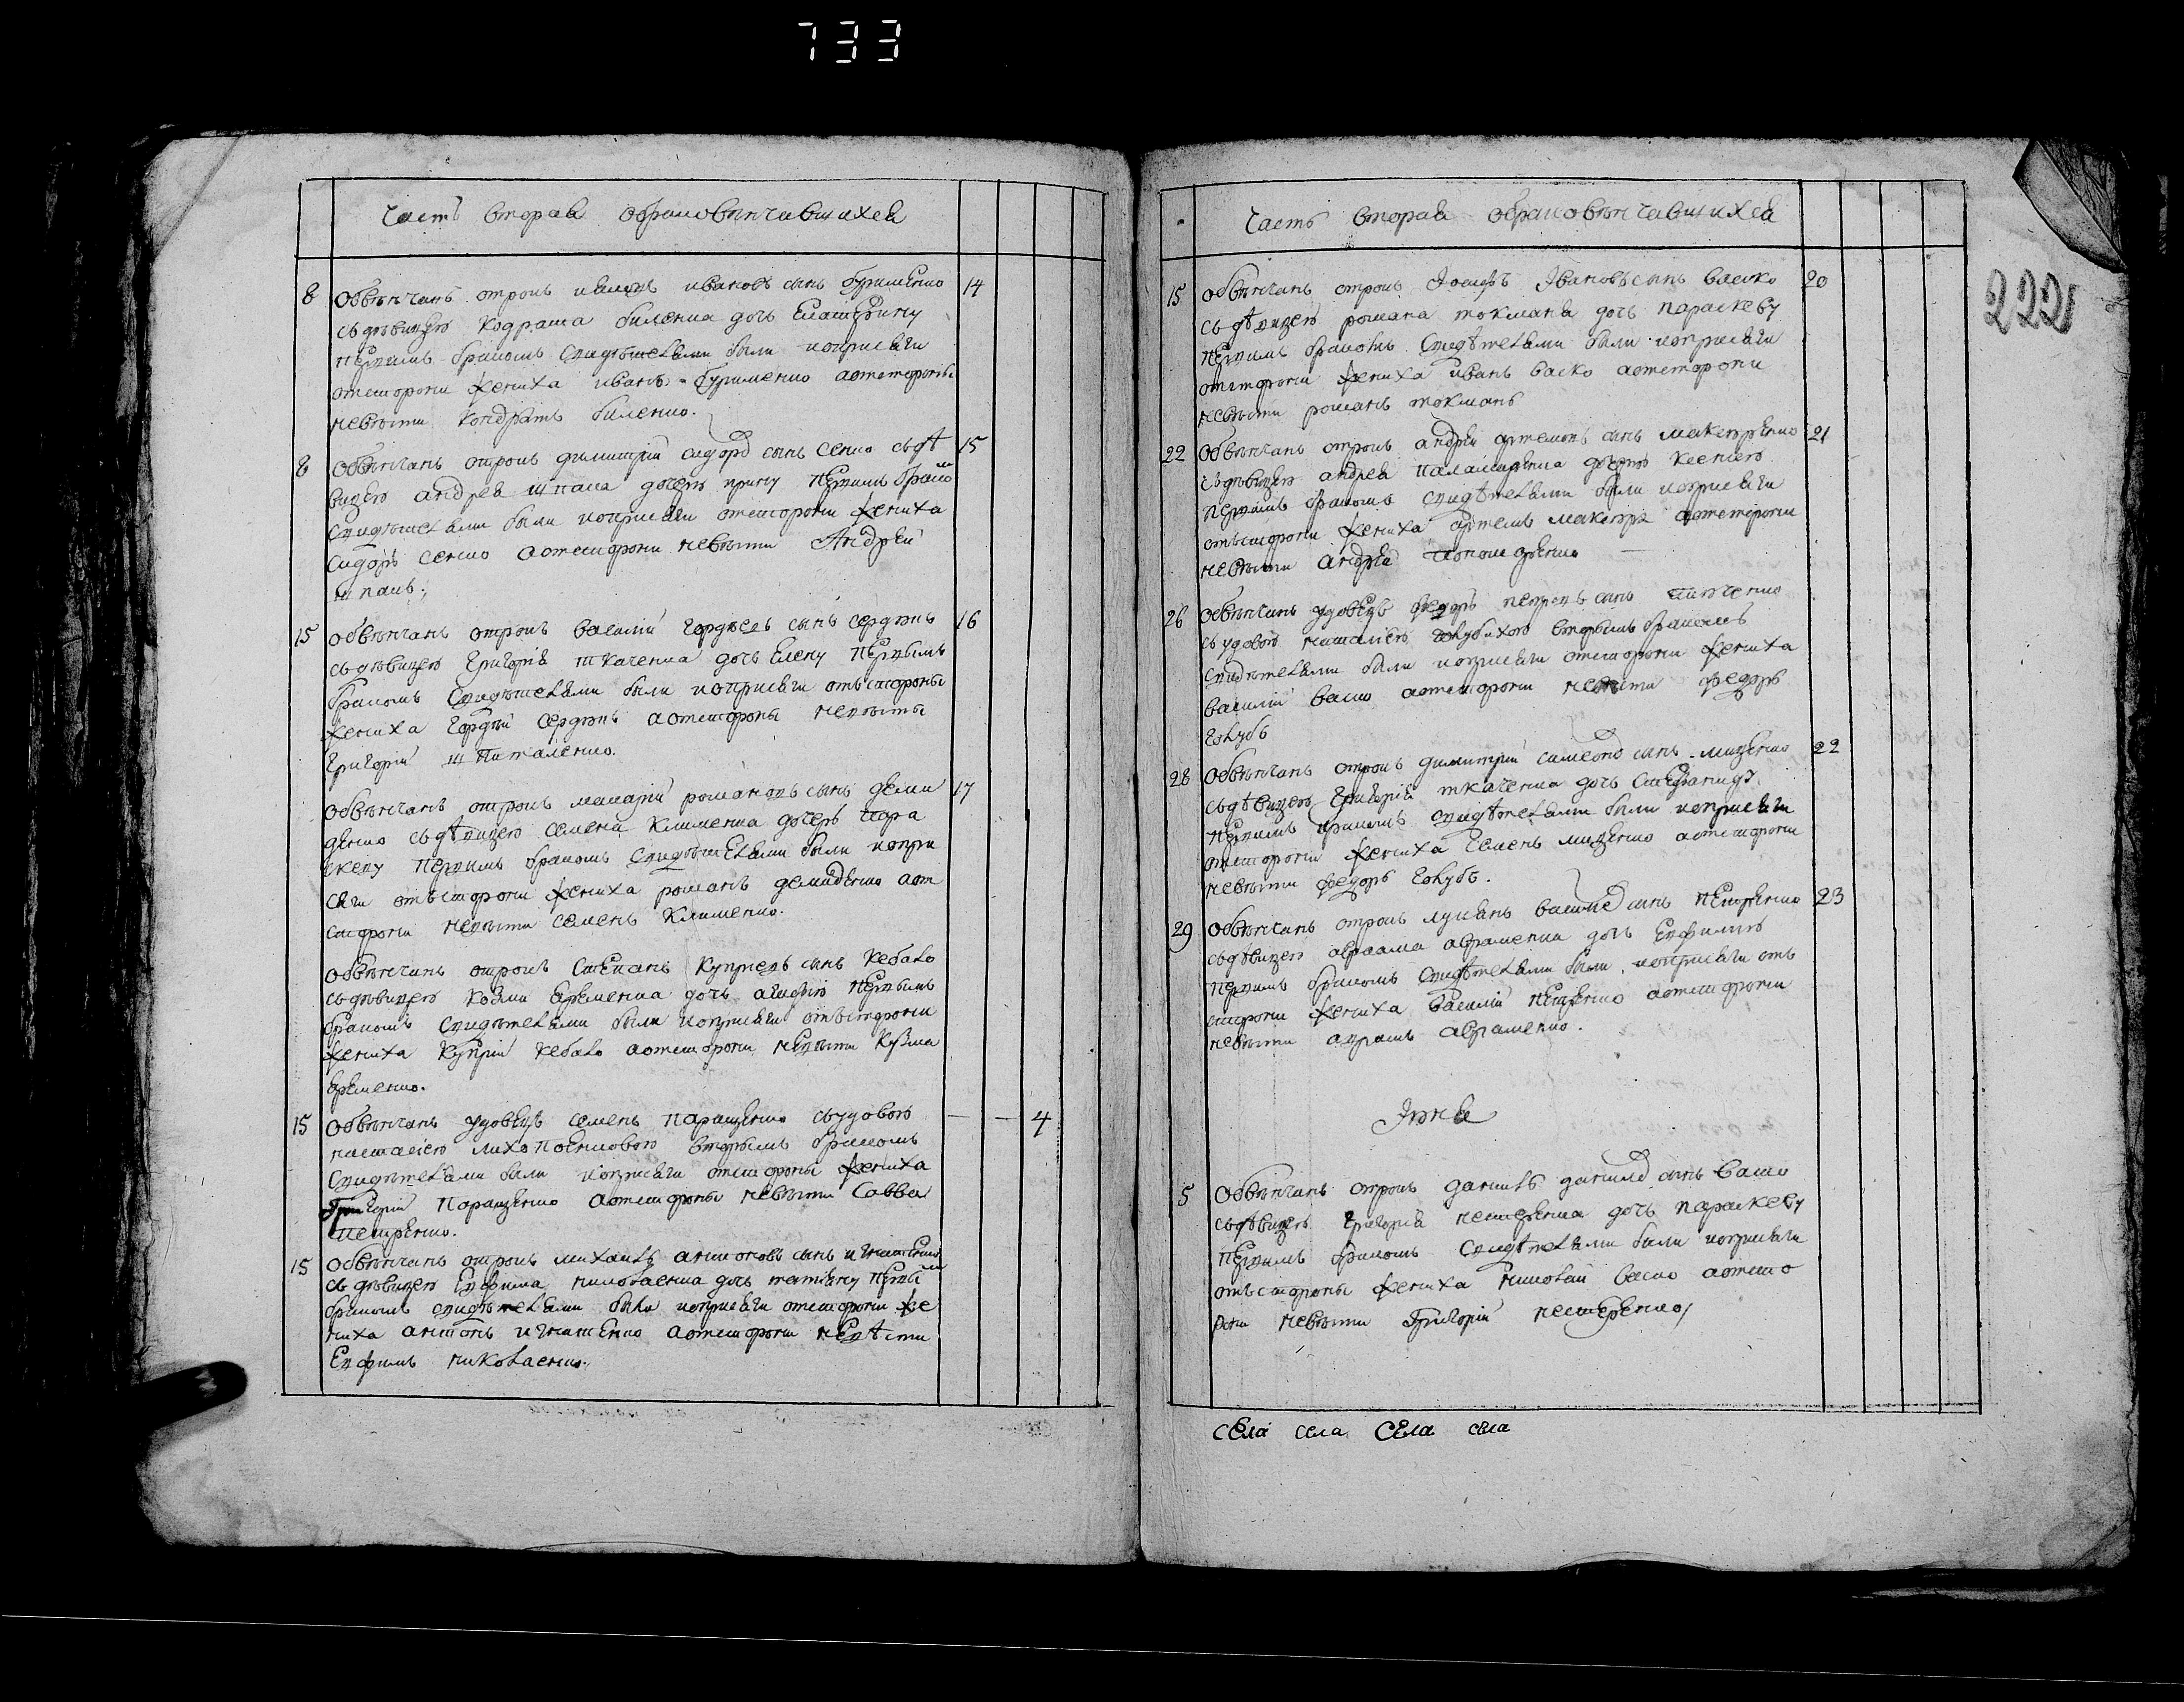 733
Часть вторая обраковѣнчавшихся
8 Обвѣнчанъ отрокъ ивановъ сынъ буриленко 14
съдѣвицею Кодрата биленка дочь Екатерину
первимъ бракомъ свидѣтелами былиuприсяги
отстороны жениха иванъ бурименко аотстороны
невѣсти Кондратъ биленко.
8 Обвѣнчанъ отрокъ димитрій сидоров сынъ сенко съдѣ 15
вицею андрея шпака дочерь ирину первимъ браком
свидѣтелами были иоприсяги отстороны жениха
сидоръ сенко аотстороны невѣсти Андрей
шпакъ.
15 обвѣнчанъ отрокъ василій гордѣевъ сынъ сердюкъ 16
съдѣвицею григорія ткаченка дочь Елену первымъ
бракомъ свидѣтелами были иоприсяги отъстороны
жениха гордѣй сердюкъ аотстороны невѣсты
григорій
Обвѣнчанъ отрокъ макарій романовъ сынъ деми 17
денко съдѣвицею семена клименка дочерь пара
скеву первимъ бракомъ свидѣтелами были иопри
сяги отъстороны жениха романъ демиденко аот
стороны невѣсти семенъ клименко.
Обвѣнчанъ отрокъ Стефанъ Купріевъ сынъ кебало
съдѣвицею козми Яременка дочь первымъ
бракомъ свидѣтелами были иоприсяги отъстороны
жениха Купрій кебало аотстороны невѣсти Кузма
Яременко.
15 Обвѣнчанъ удовецъ семенъ паращенко съудовою — — 4
наталіею вторымъ бракомъ
свидѣтелами были иоприсяги отстороны жениха
Григорій паращенко аотстороны невѣсти Савва
петренко.
15 Обвѣнчанъ отрокъ михаилъ антоновъ сынъ игнатенко
съдѣвицею Евфима николаенка дочь татіану первы
бракомъ свидѣтелами были иоприсяги отстороны же
ниха антонъ игнатенко аотстороны невѣсти
Евфимъ николаенко.
Часть вторая обраковѣнчавшихся
222
15 обвѣнчанъ отрокъ Іосифъ Івановъ сынъ васко 20
съдѣвицею романа токмана дочь параскеву
первимъ бракомъ свидѣтелами были иоприсяги
отстороны жениха иванъ васко аотстороны
невѣсти романъ токманъ
22 Обвѣнчанъ отрокъ андрей артемовъ сынъ 21
съдѣвицею андрея дочерю ксенію
первимъ бракомъ свидѣтелами были иоприсяги
отъстороны жениха артемъ аотстороны
невѣсти андрей
26 Обвѣнчанъ удовецъ федоръ петровъ сынъ
съудовою наталіею вторымъ бракомъ
свидѣтелами были иоприсяги отстороны жениха
василій васко аотстороны невѣсти федоръ
голубъ
28 Обвѣнчанъ отрокъ димитрій симеонов сынъ мищенко 22
съдѣвицею григорія ткаченка дочь Стефаниду
первимъ бракомъ свидѣтелами были иоприсяги
отстороны жениха семенъ мищенко аотстороны
невѣсти федоръ голубъ.
29 обвѣнчанъ отрокъ лукянъ василіев сынъ петренко 23
съдѣвицею авраама авраменка дочь Евфимію
первимъ бракомъ свидѣтелами были иоприсяги отъ
стороны жениха василій петренко аотстороны
невѣсти аврамъ авраменко.
Іюня
5 Обвѣнчанъ отрокъ данилъ данилов сынъ васко
съдѣвицею григорія нестеренка дочь параскеву
первимъ бракомъ свидѣтелами были иоприсяги
отъстороны жениха николай васко аотсто
роны невѣсти Григорій нестеренко
села села села села